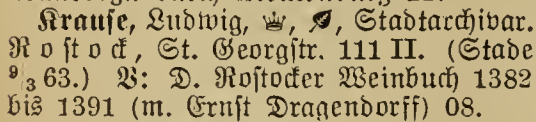 Krause, Ludwig, ♕, Stadtarchivar.
Rostock, St. Georgstr. 111 II. (Stade
9/3 63.) V: D. Rostocker Weinbuch 1382
bis 1391 (m. Ernst Dragendorff) 08.